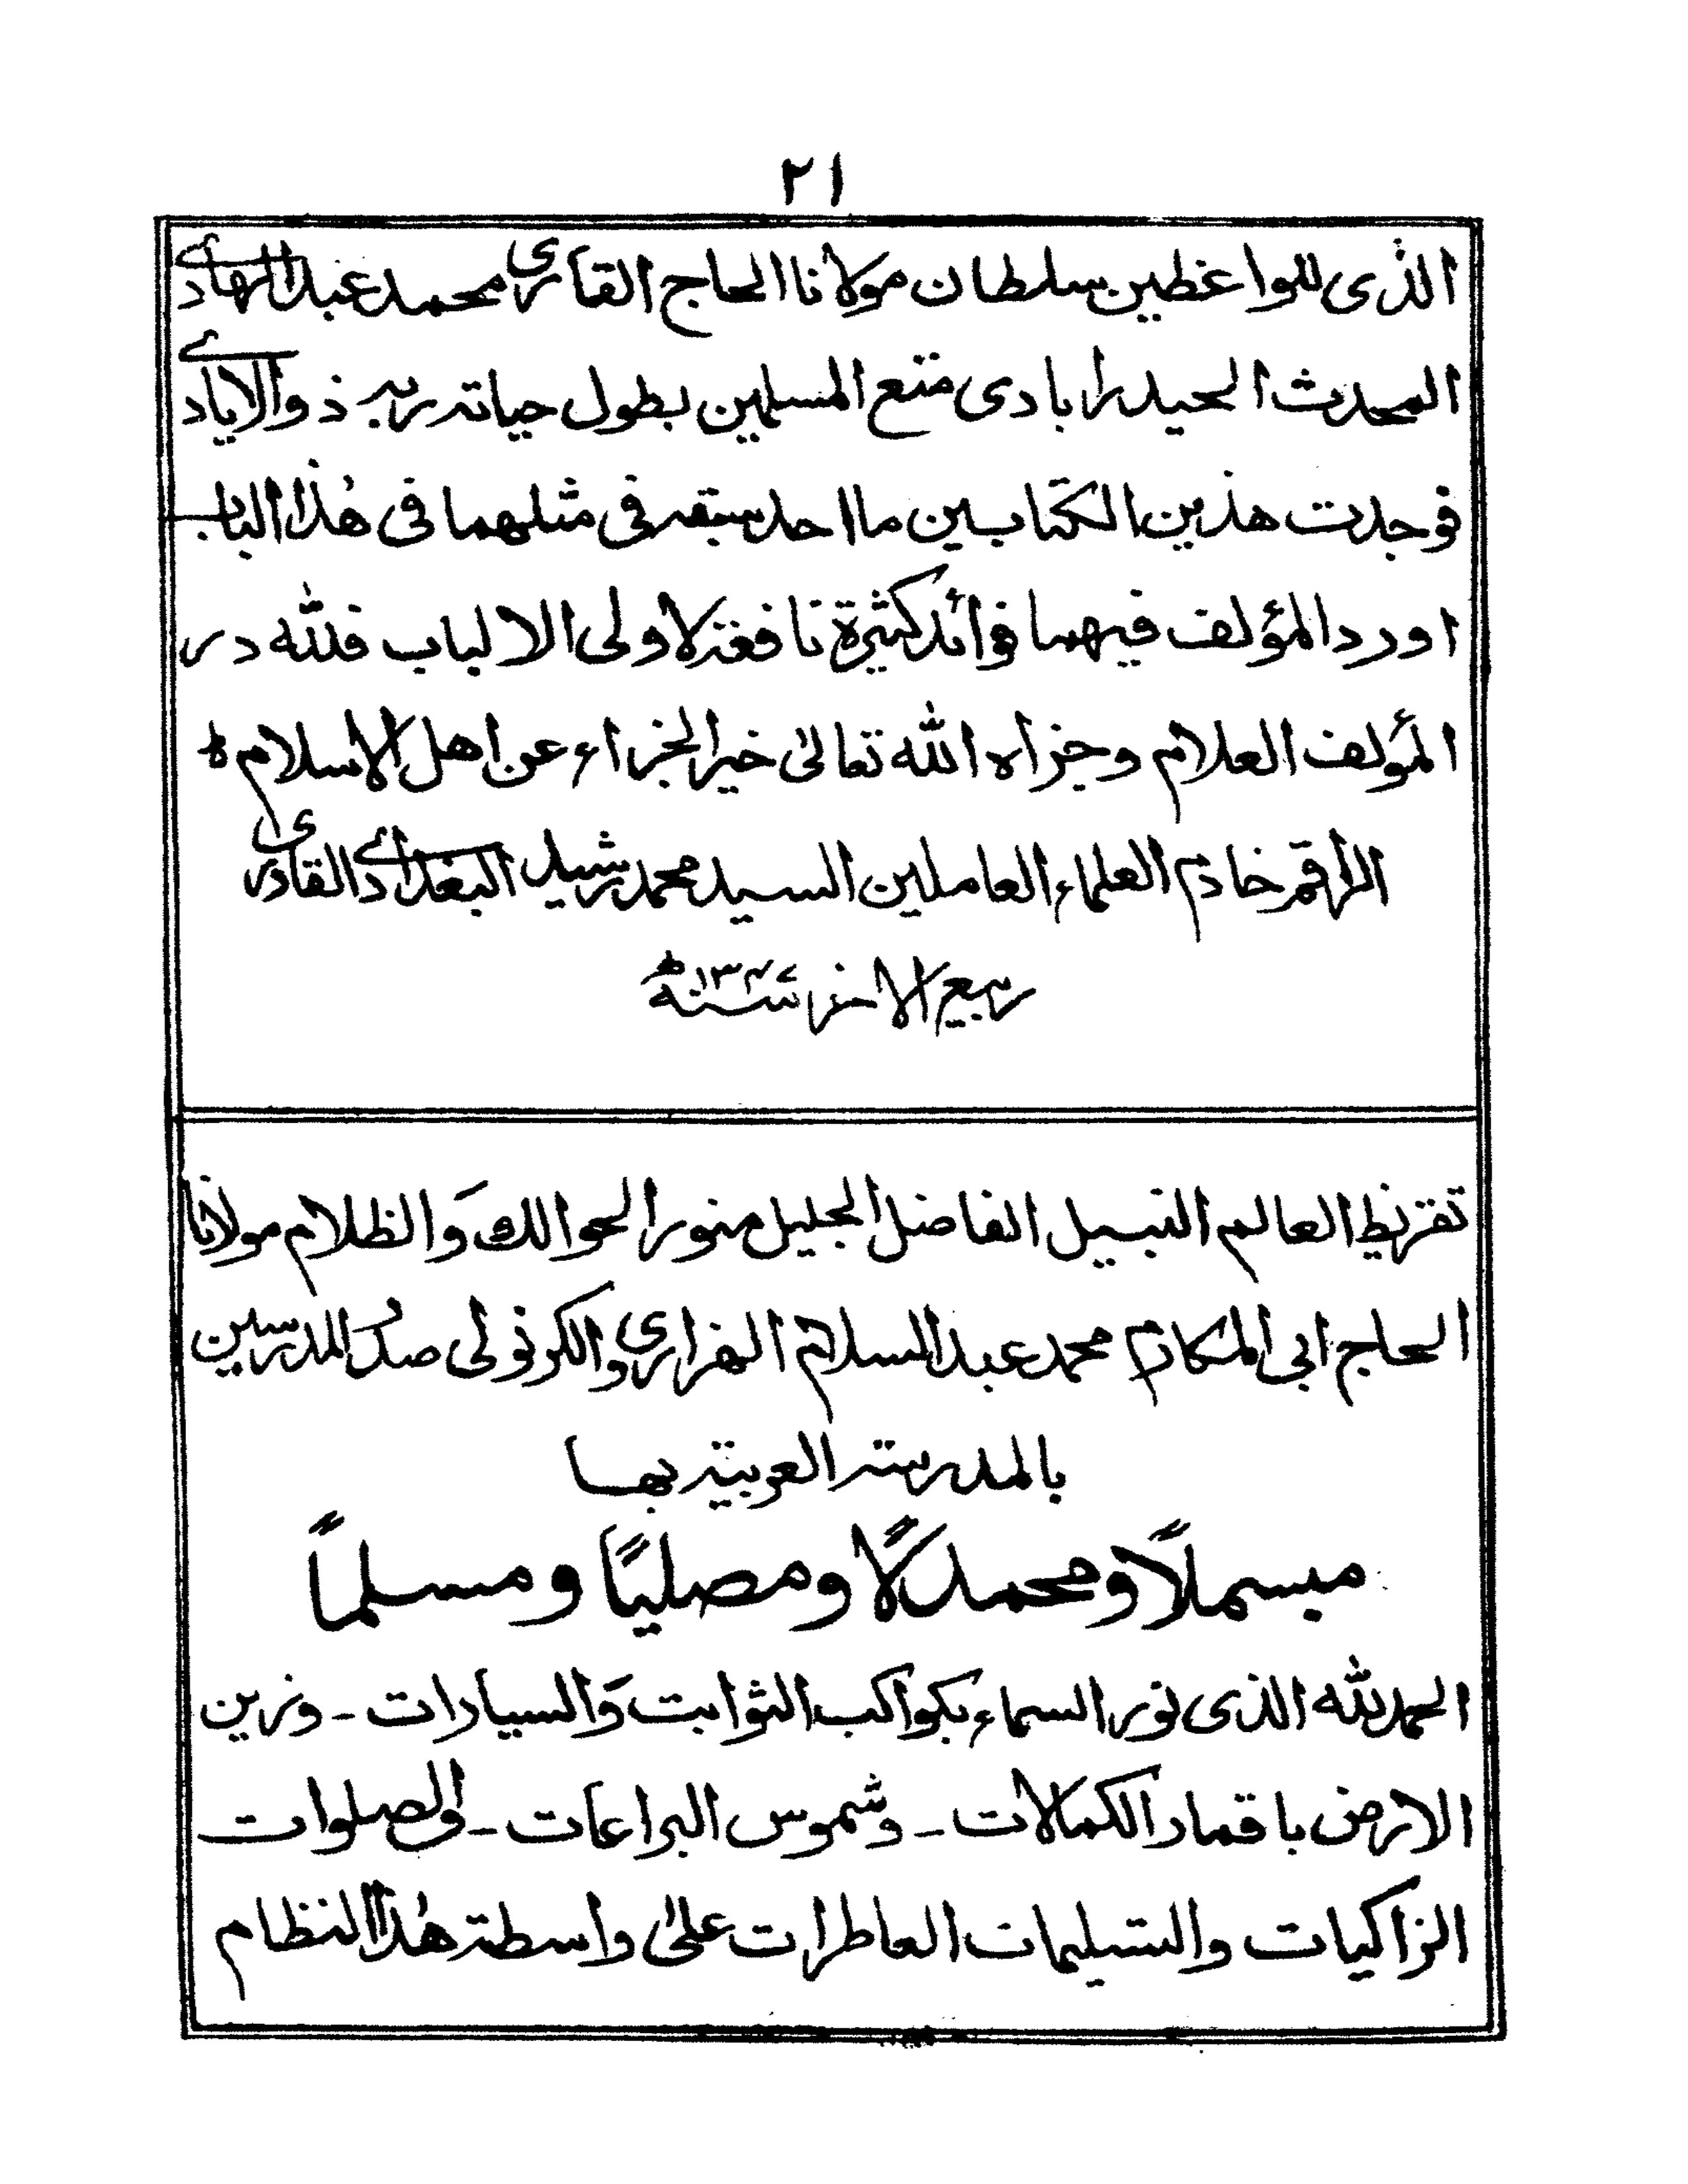 ٢١
الذى للواعظين سلطان مولانا الحاج القارى محمد عبد الهادے
المحدث الحيدرابادى متع المسلمين بطول حياته ربه ذو الاياد
فوجدت هذين الكتابين ما احد سبقه فى مثلهما فى هٰذا الباب
اورد المؤلف فيهما فوائد كثيرة نافعة لاولى الالباب فلله در
المؤلف العلام وجزاه الله تعالىٰ خير الجزاء عن اهل الاسلام
الراقم خادم العلماء العاملين السيد محمد رشيد البغدادے القادرى
ربيع الاخر سنة
تقريظ العالم النبيل الفاضل الجليل منور الحوالك وَالظلام مولانا
الحاج ابى المكارم محمد عبد السلام الهزاروى الكرنولى صدر المدرسين
بالمدرسة العربية بها
مبسملاً ومحمدلاً ومصليًا ومسلماً
الحمد لله الذى نور السماء بكواكب الثوابت وَالسيارات - وزين
الارض باقمار الكمالات - وشموس البراعات - والصلوات
الزاكيات والتسليمات العاطرات علىٰ واسطة هٰذا النظام